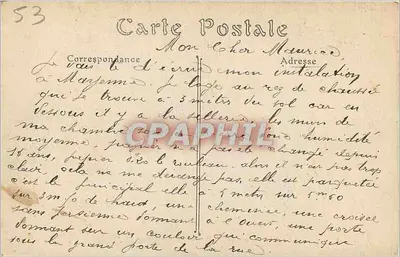 53
Carte Postale
Mon Cher Maurice
Correspondance Adresse
Je vais te d'écrire mon instalation
à Mayenne. Je loge au reg de chaussée
qui se trouve à 3 mètres du sol car en
dessous il y a la sellerie, les murs de
ma chambre humidité
moyenne, pas changé depuis
15 ans, papier très le rouleau, alors il n'est pas trop
clair, cela ne me dérange pas, elle est parquetée
c'est le principal elle a 5 metrs sur 5m50
sur 3m50 de haut, une cheminée, une croisée
sans persienne donnant à l'ouest, une porte
donnant sur un couloir qui communique
sous la grand porte de la rue.
CPARAMA